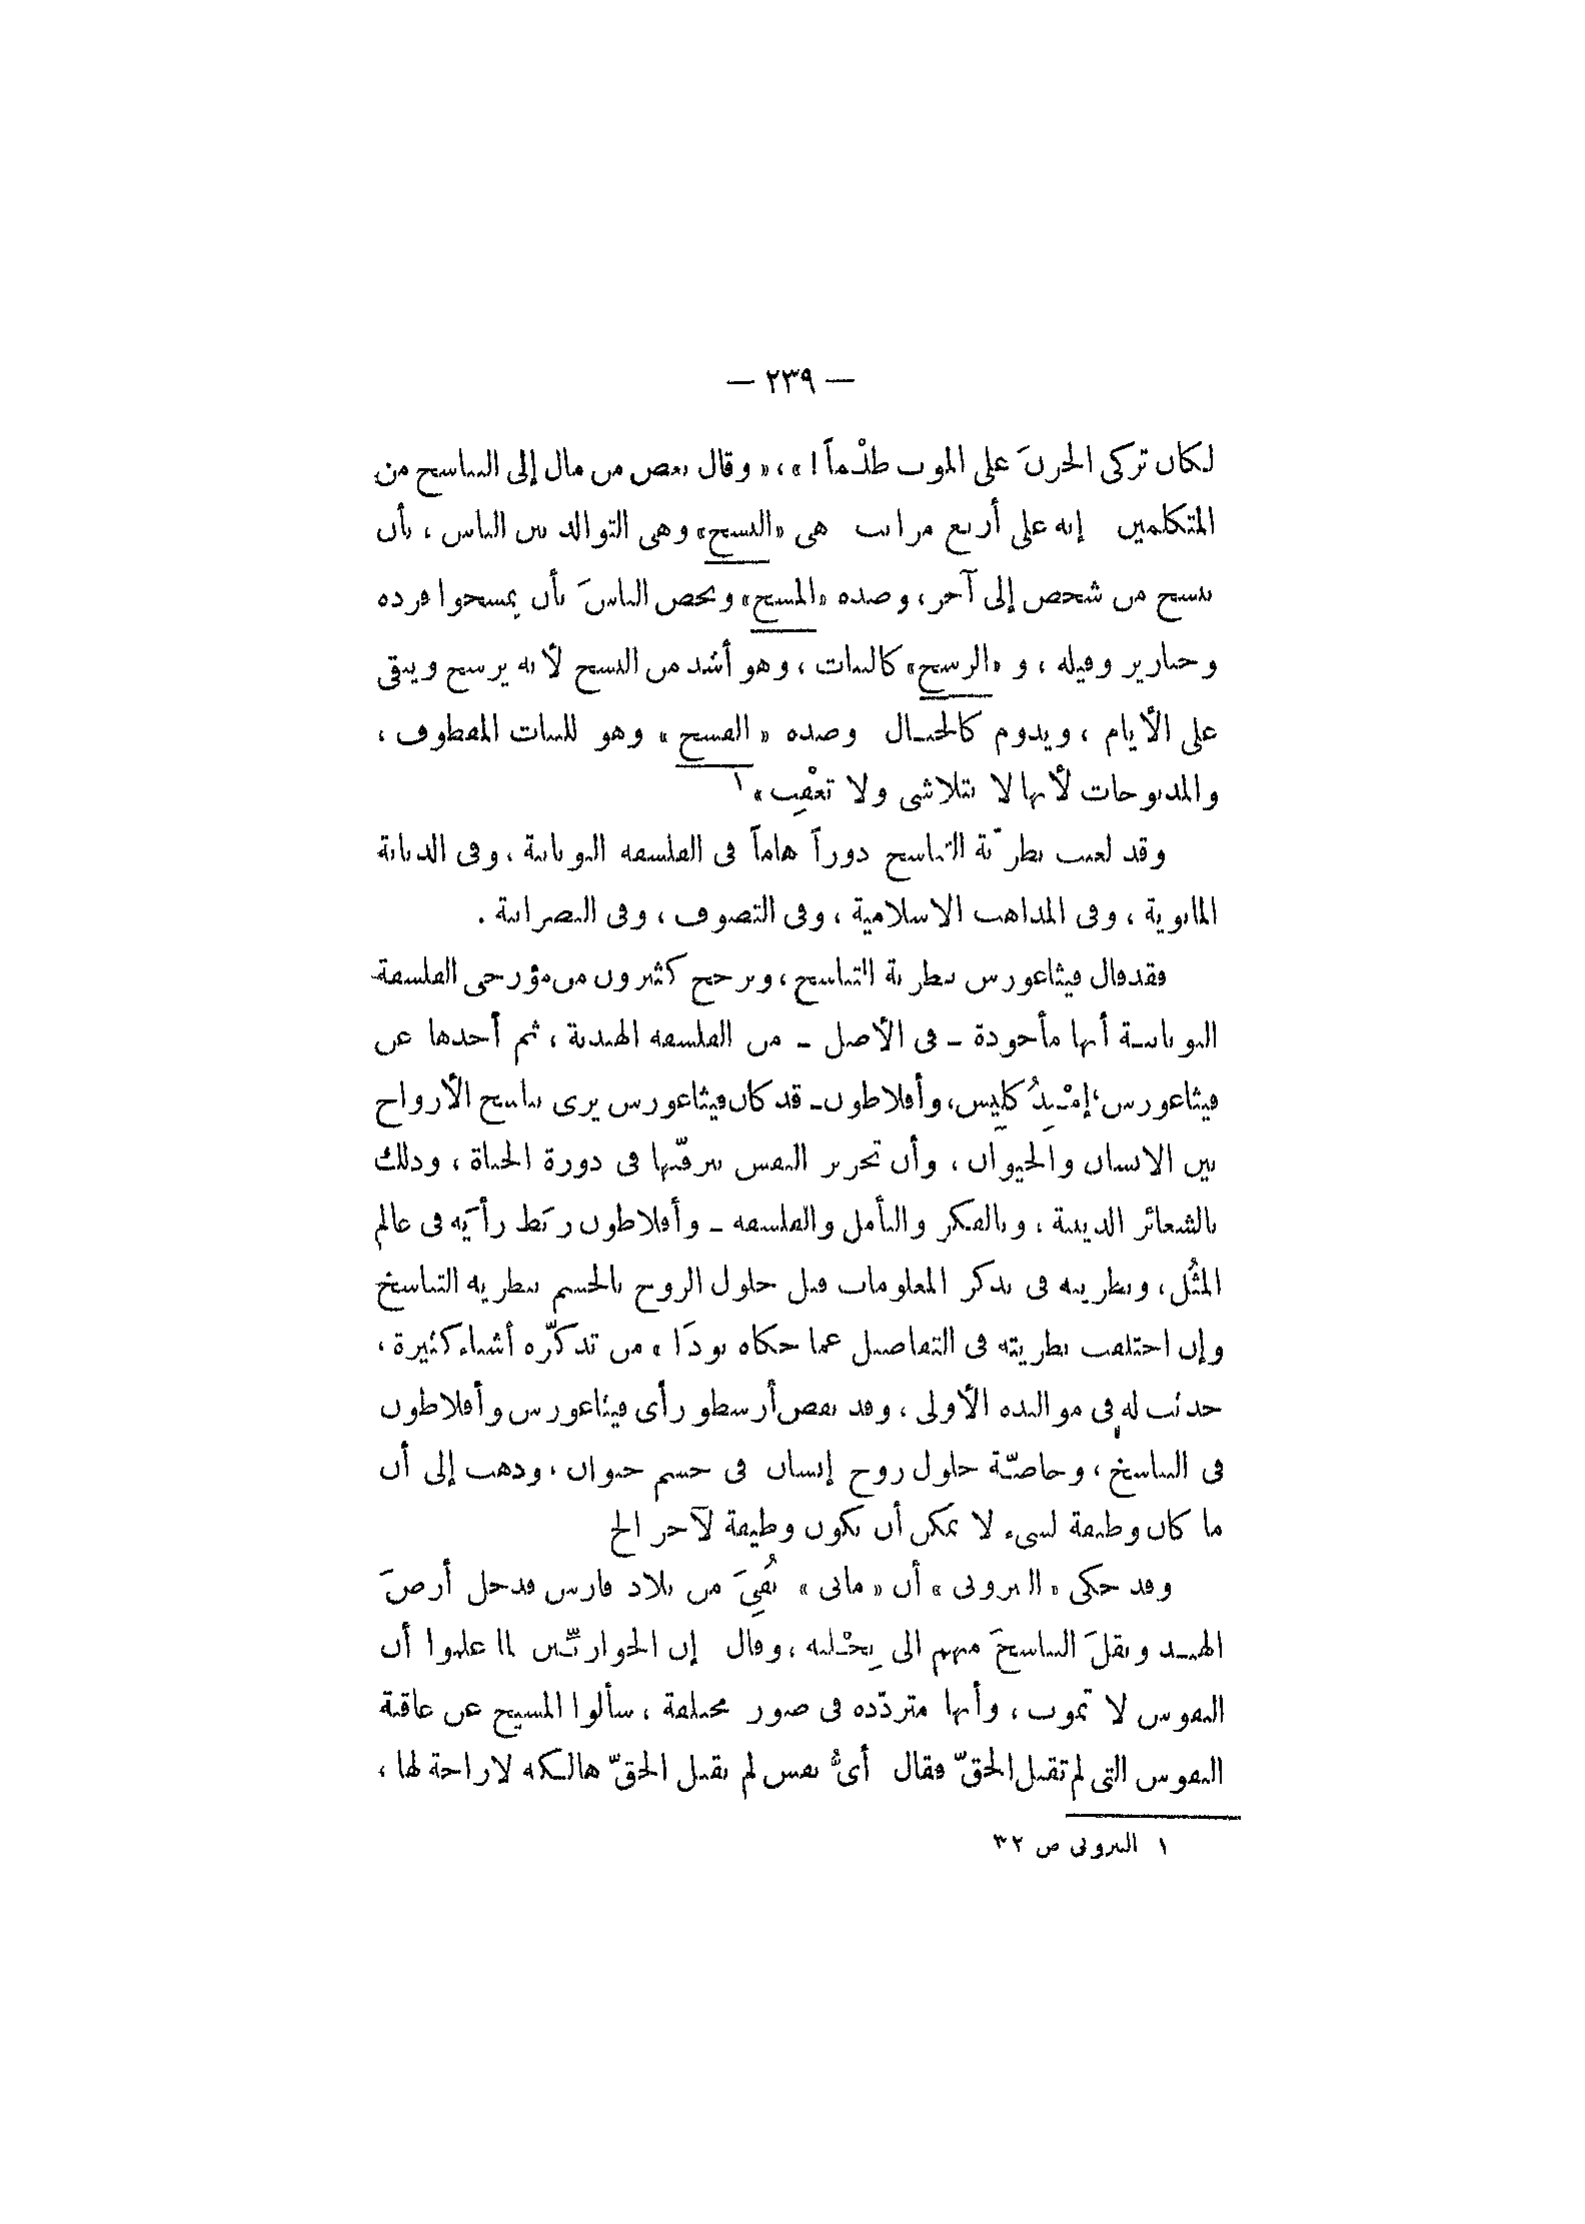 — ٢٣٩ —
لكان تركى الحزنَ على الموت ظلْماً ! » ، « وقال بعض من مال إلى التناسخ من
المتكلمين إنه على أربع مراتب هى «النسخ» وهى التوالد بين الناس ، بأن
ينسخ من شخص إلى آخر ، وضده «المسخ» ويخص الناسَ بأن يمسخوا قردة
وخنازير وفيلة ، و «الرسخ» كالنبات ، وهو أشد من النسخ لأنه يرسخ ويبقى
على الأيام ، ويدوم كالجبال وضده « الفسخ » وهو للنبات المقطوف ،
والمذبوحات لأنها لا تتلاشى ولا تعْقِب » ١
وقد لعبت نظريّة التناسخ دوراً هاماً فى الفلسفة اليونانية ، وفى الديانة
المانوية ، وفى المذاهب الاسلامية ، وفى التصوف ، وفى النصرانية .
فقد قال فيثاغورس بنظرية التناسخ ، ويرجح كثيرون من مؤرخى الفلسفة
اليونانية أنها مأخوذة ـ فى الأصل ـ من الفلسفة الهندية ، ثم أخذها عن
فيثاغورس ، إمْبِدُ كلِيِس ، وأفلاطون ـ قد كان فيثاغورس يرى تناسخ الأرواح
بين الانسان والحيوان ، وأن تحرير النفس بترقّيها فى دورة الحياة ، وذلك
بالشعائر الدينية ، وبالفكر والتأمل والفلسفة ـ وأفلاطون ربَط رأيَه فى عالم
المثُل ، ونظريته فى تذكر المعلومات قبل حلول الروح بالجسم بنظرية التناسخ
وإن اختلفت نظريته فى التفاصيل عما حكاه بوذَا « من تذكّره أشياء كثيرة ،
حدثت له فى مواليده الأولى ، وقد نقض أرسطو رأى فيثاغورس وأفلاطون
فى التناسخ ، وخاصّة حلول روح إنسان فى جسم حيوان ، وذهب إلى أن
ما كان وظيفة لشىء لا يمكن أن تكون وظيفة لآخر الخ
وقد حكى « البيرونى » أن « مانى » نُفِىَ من بلاد فارس فدخل أرضَ
الهند ونقلَ التناسخَ منهم الى نِحْلته ، وقال إن الحواريّين لما علموا أن
النفوس لا تموت ، وأنها متردّدة فى صور مختلفة ، سألوا المسيح عن عاقبة
النفوس التى لم تقبل الحقّ فقال أىُّ نفس لم تقبل الحقّ هالكة لا راحة لها ،
١ البيرونى ص ٣٢